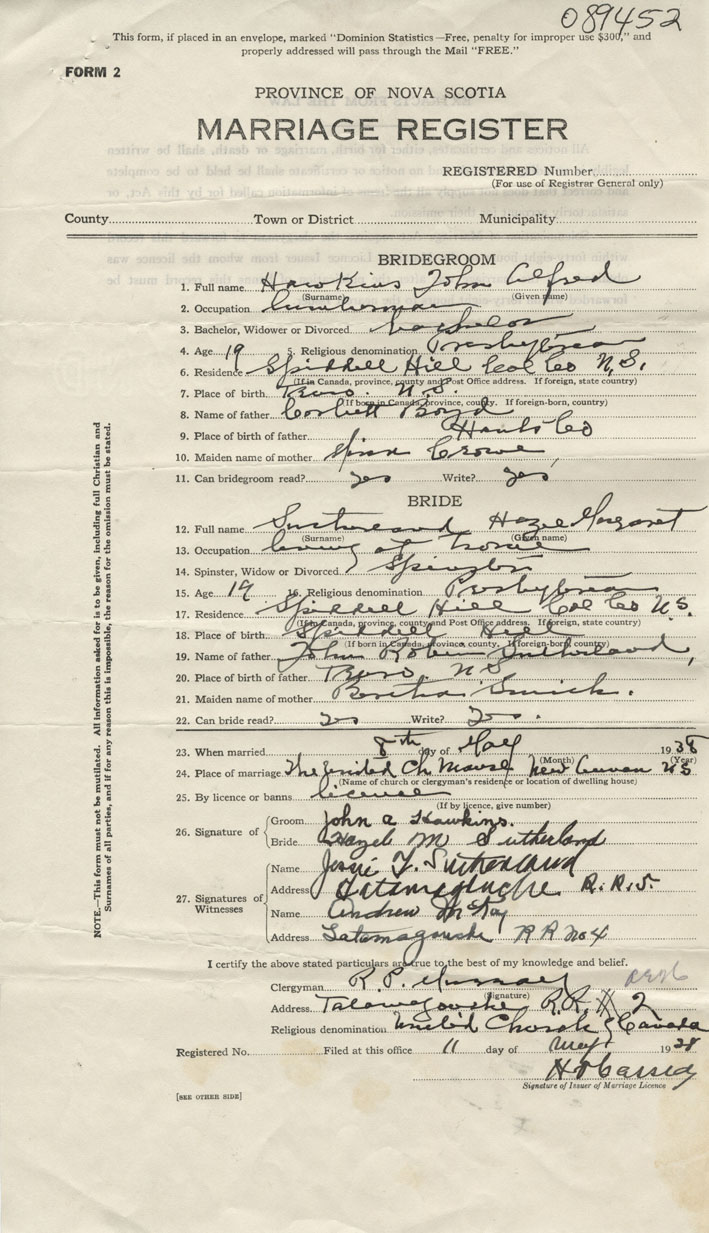 089452
This form, if placed in an envelope, marked "Dominion Statistics—Free, penalty for improper use $300," and
properly addressed will pass through the Mail "FREE."
FORM 2
PROVINCE OF NOVA SCOTIA
MARRIAGE REGISTER
REGISTERED Number
(For use of Registrar General only)
County Town or District Municipality
BRIDEGROOM
1. Full name Hawkins John Alfred
(Surname) (Given name)
2. Occupation Lumberman
3. Bachelor, Widower or Divorced bachelor
4. Age 19 5. Religious denomination Presbyterian
6. Residence Spiddell Hill Col Co N.S.
(If in Canada, province, county and Post Office address. If foreign, state country)
7. Place of birth Truro. N.S.
(If born in Canada, province, county. If foreign-born, country)
8. Name of father Corbett Boyd
9. Place of birth of father Hants Co
10. Maiden name of mother Crowe
11. Can bridegroom read? yes Write? yes
BRIDE
12. Full name Sutherland Hazel Margaret
(Surname) (Given name)
13. Occupation living at home
14. Spinster, Widow or Divorced Spinster
15. Age 19 16. Religious denomination Presbyterian
17. Residence Spiddell Hill Col Co N.S.
(If in Canada, province, county and Post Office address. If foreign, state country)
18. Place of birth Spiddell Hill
(If born in Canada, province, county. If foreign-born, country)
19. Name of father John Robert Sutherland,
20. Place of birth of father Truro. N S
21. Maiden name of mother Bertha
22. Can bride read? yes Write? yes.
23. When married 8th day of May 1938
(Month) (Year)
24. Place of marriage The United Ch Manse New Annan NS
(Name of church or clergyman's residence or location of dwelling house)
25. By licence or banns licence
(If by licence, give number)
26. Signature of
Groom John A Hawkins.
Bride Hazel M Sutherland
27. Signatures of Witnesses
Name Jessie Y. Sutherland
Address Tatamagouche R.R.5.
Name Andrew McKay
Address Tatamagouche R R No 4
I certify the above stated particulars are true to the best of my knowledge and belief.
Clergyman R. P. Murray
(Signature)
Address Tatamagouche R.R. # 2
Religious denomination United Church of Canada
Registered No. Filed at this office 11 day of May 1938
Signature of Issuer of Marriage Licence
[SEE OTHER SIDE]
NOTE.—This form must not be mutilated. All information asked for is to be given, including full Christian and
Surnames of all parties, and if for any reason this is impossible, the reason for the omission must be stated.